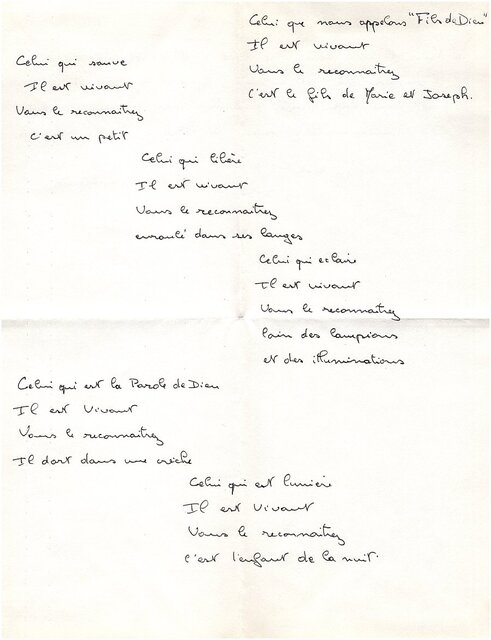 Celui que nous appelons "Fils de Dieu"
Il est vivant
Vous le reconnaitrez
C'est le fils de Marie et Joseph.
Celui qui sauve
Il est vivant
Vous le reconnaitrez
C'est un petit
Celui qui libère
Il est vivant
Vous le reconnaitrez
enroulé dans ses langes
Celui qui eclaire
Il est vivant
Vous le reconnaitrez
loin des lampions
et des illuminations
Celui qui est la Parole de Dieu
Il est Vivant
Vous le reconnaitrez
Il dort dans une crèche
Celui qui est lumière
Il est Vivant
Vous le reconnaitrez
C'est l'enfant de la nuit.